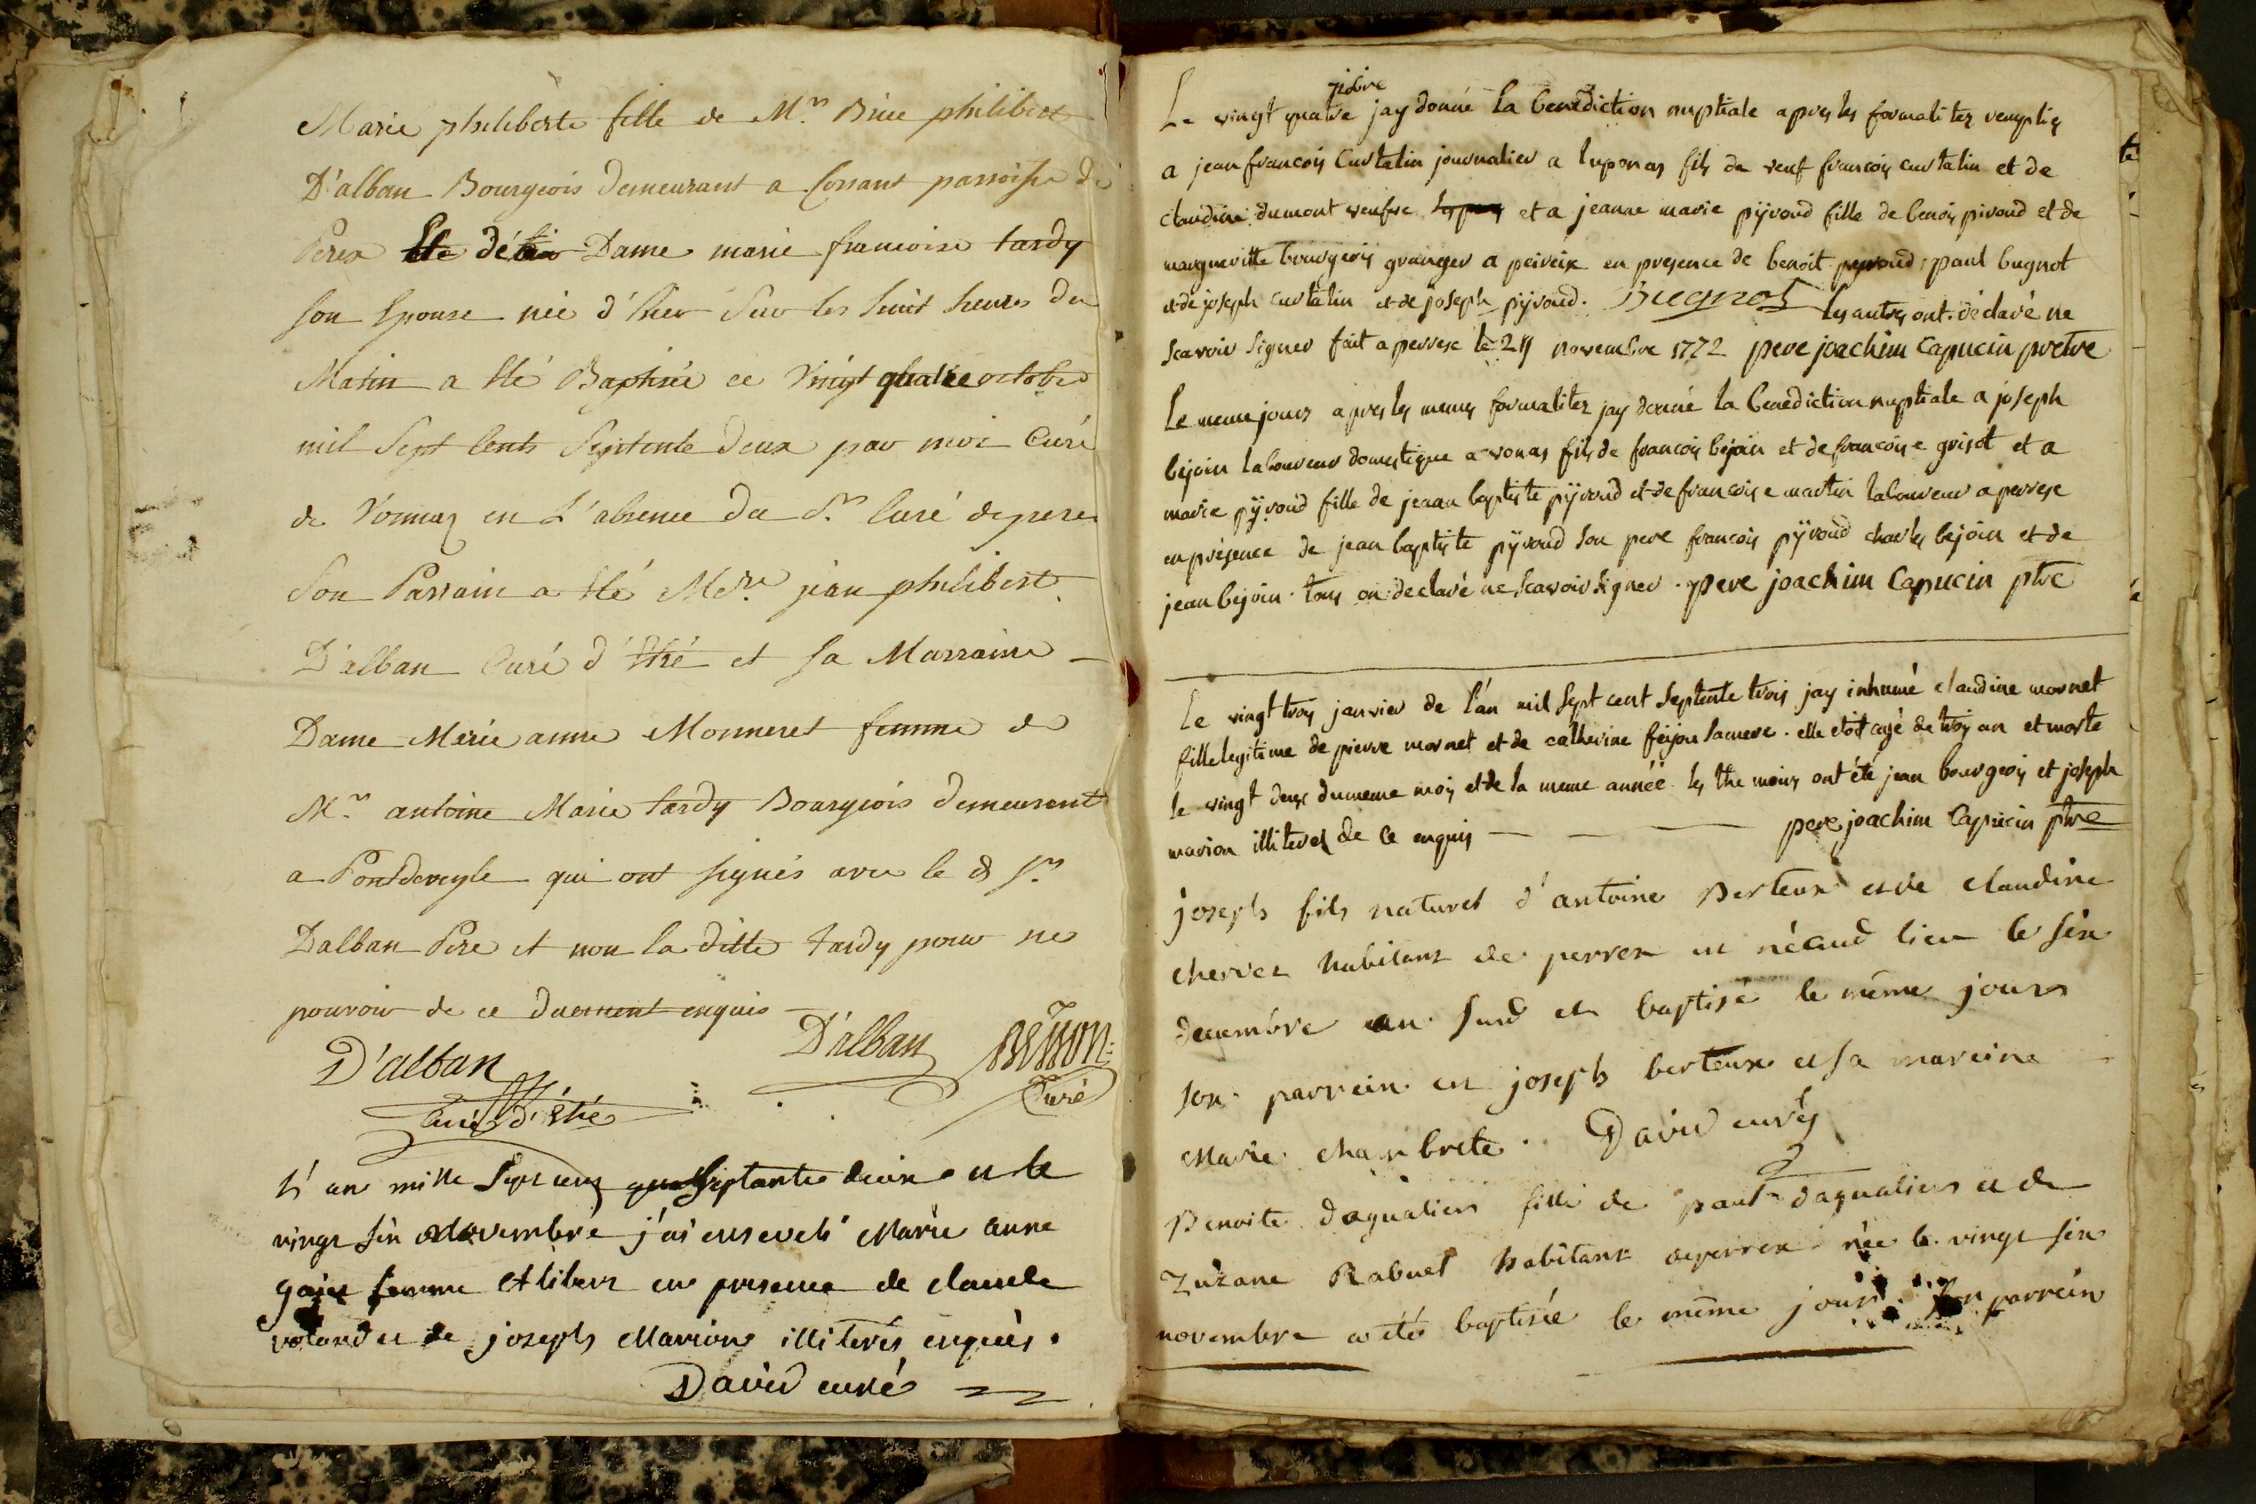 Marie philiberte fille de Mr. Brice philibert
D'alban Bourgeois demeurant a Corsant parroisse de
Perex Dame marie francoise tardy
son Epouse née d'hier sur les huit heures du
Matin a été Baptisée ce vingt quatre octobre
mil Sept Cents Septente deux par moi Curé
de Vonnaz en L'absence du Sr. Curé de perex
Son Parrain a été Mr. jean philibert
D'alban Curé d'Etré et sa Marraine
Dame Marie anne Monneret femme de
Mr. antoine Marie tardy Bourgeois demeurant
a Pontdeveyle qui ont signés avec le d Sr.
Dalban Pere et non la ditte tardy pour ne
pouvoir de ce duement enquis
D'alban D'alban
Curé d'Etré Curé
L'an mille Sept cens Septante deux et le
vingt six novembre j'ai enseveli Marie anne
femme en presence de claude
et de joseph Marion illiterés enquis.
David curé
Le vingt quatre jay donné la benediction nuptiale apres les formalitez remplies
a jean francois Curtalin journalier a luponas fils de veuf francois curtalin et de
claudine dumont et a jeanne marie pijroud fille de benois piroud et de
margueritte bourgeois granger a peireix en presence de benoit pyroud, paul bugnot
et de joseph curtalin et de joseph pijroud. Bugnot les autres ont déclaré ne
Scavoir Signer fait a perrex le 24 novembre 1772 pere joachim Capucin pretre
Le meme jours apres les memes formalitez jay donné la benediction nuptiale a joseph
bejoin laboureur domestique a vonas fils de francois bejoin et de francoise grisot et a
marie pijroud fille de jean baptiste pijroud et de francoise martin laboureur a perrex
en présence de jean baptiste pijroud son pere francois pijroud charles bejoin et de
jean bejoin. tous on declaré ne scavoir signer. pere joachim Capucin ptre
Le vingt trois janvier de l'an mil Sept cent Septente trois jay inhumé claudine mornet
fille legitime de pierre mornet et de catherine feijou sa mere. elle etoit agé de trois an et morte
le vingt deux du meme mois et de la meme année. les the moins ont été jean bourgeois et joseph
marion illiteres de ce enquis pere joachim Capucin ptre
joseph fils naturel d'antoine Berteux et de claudine
cherver habitant de perrex né aud lieu le six
decembre an sud et baptisé le même jours
son parrein est joseph berteux et sa mareine
Marie chambrete. David curé
Benoite daqualier fille de paul daqualier et de
Zuzane Rabuet habitant a perrex née le vingt six
novembre a été baptisée le même jour. Son parrein